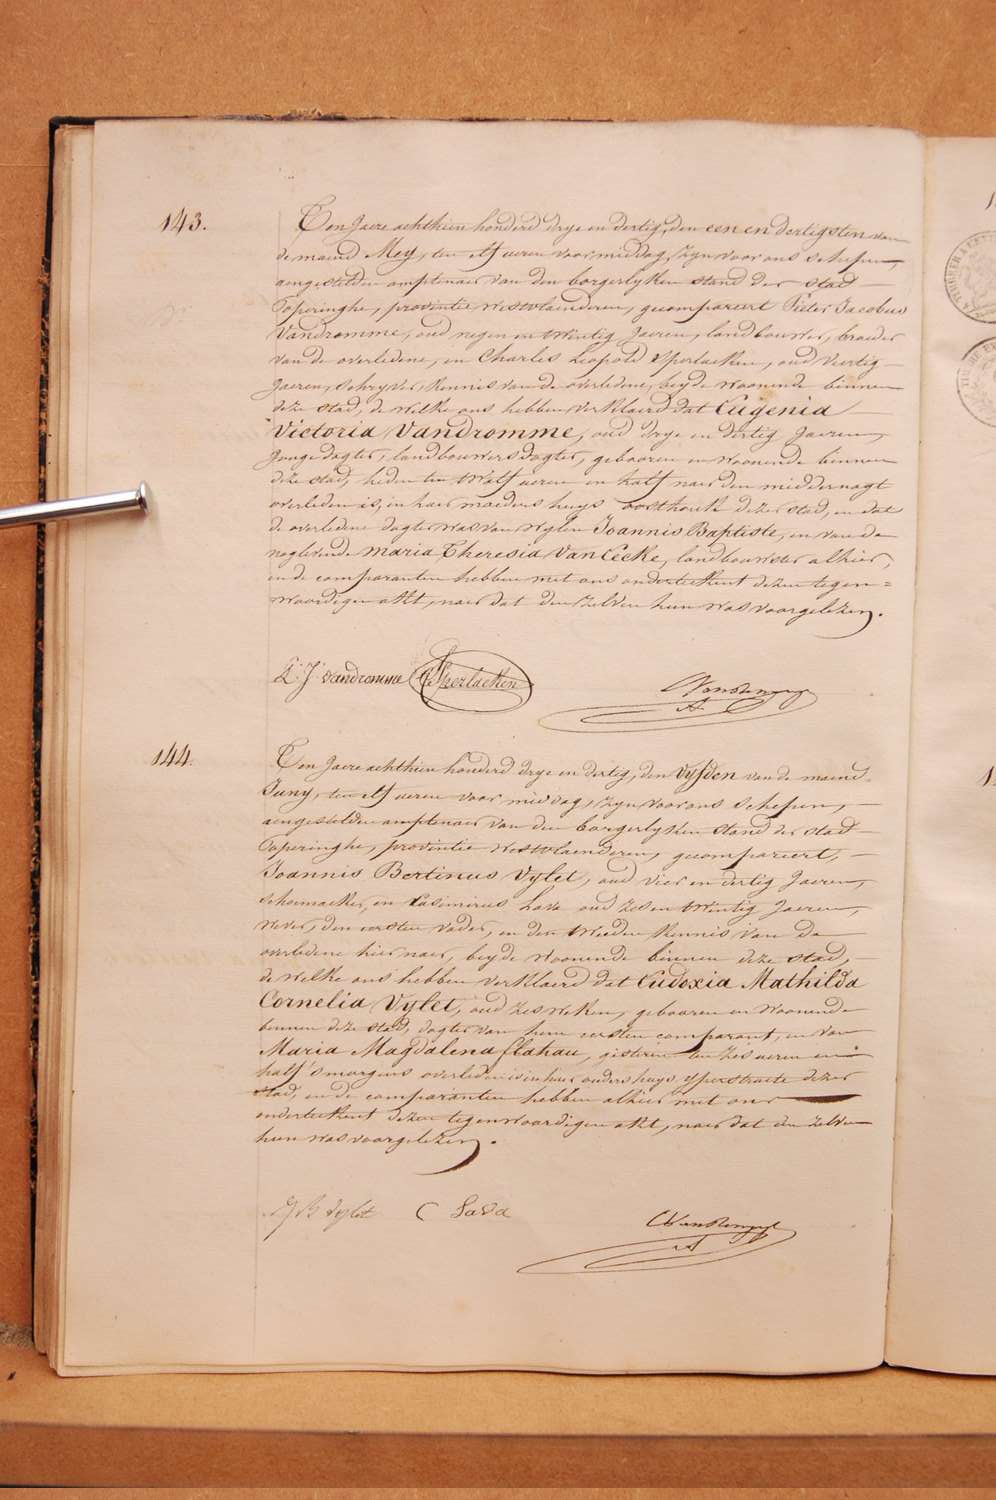 143.
Ten Jaere achthien honderd drye en dertig, den een en dertigsten van
de maend Mey, ten elf ueren voormiddag, zyn voor ons schepen,
aengestelden amptenaer van den borgerlyken stand der stad
Poperinghe, provintie Westvlaenderen, gecompareert Pieter Jacobus
Vandromme, oud negen en twintig Jaeren, landbouwer, broeder
van de overledene, en Charles Leopold Yperlaeken, oud veertig
Jaeren, schryver, kennis van de overledene, beyde woonende binnen
deze stad, de welke ons hebben verklaerd dat Eugenia
Victoria Vandromme, oud drye en dertig Jaeren,
Jonge dogter, landbouwers dogter, gebooren en woonende binnen
deze stad, heden ten twelf ueren en half naer den middernagt
overleden is, in haer moeders huys oosthouck dezer stad, en dat
de overledene dogter was van wylen Joannis Baptiste, en van de
naglevende Maria Theresia Van Eecke, landbouwster alhier,
en de comparanten hebben met ons onderteekent dezen tegen=
woordigen akt, naer dat den zelven hun was voorgelezen.
P. J. Vandromme Yperlaeken
144.
Ten Jaere achthien honderd drye en dertig, den vyfden van de maend
Juny, ten elf ueren voormiddag, zyn voor ons schepen,
aengestelden amptenaer van den borgerlyken stand der stad
Poperinghe, provintie Westvlaenderen, gecompareert,
Joannis Bertinus Vylet, oud vier en dertig Jaeren,
schoemaeker, en Casimirus Lava oud zes en twintig Jaeren,
wever, den eersten vader, en den tweeden kennis van de
overledene hier naer, beyde woonende binnen deze stad,
de welke ons hebben verklaerd dat Eudoxia Mathilda
Cornelia Vylet, oud zes weken, gebooren en woonende
binnen deze stad, dogter van hem eersten comparant, en van
Maria Magdalena flahau, gisteren ten zes ueren en
half 's morgens overleden is in haer ouders huys yperstraete dezer
stad, en de comparanten hebben alhier met ons
onderteekent dezen tegenwoordigen akt, naer dat den zelven
hun was voorgelezen.
J B Vylet C Lava